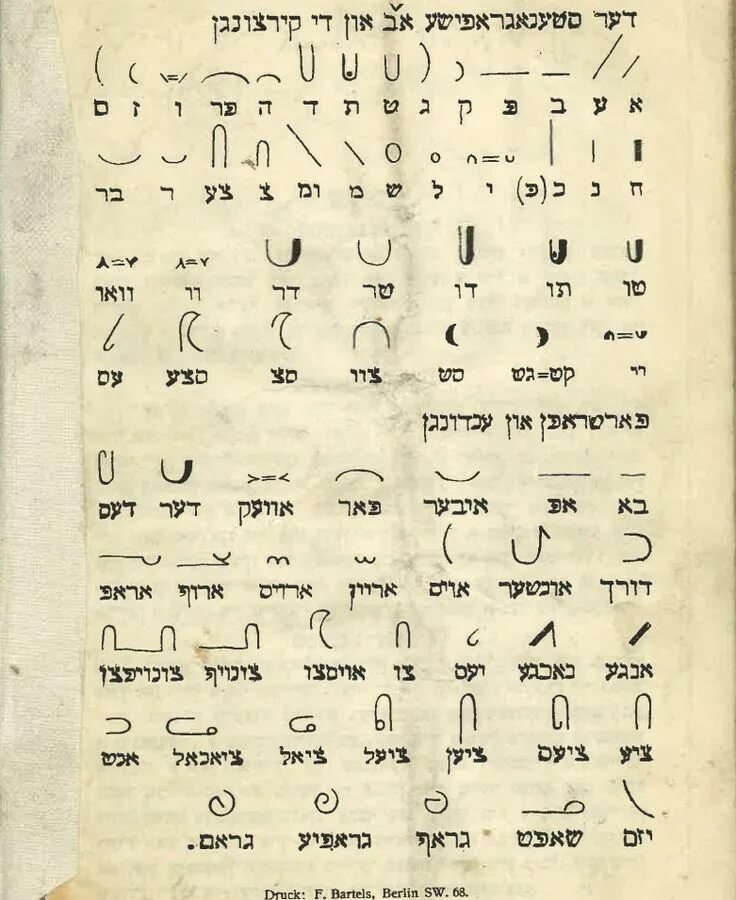 דער סטענאגראפישע אב און די קירצונגן
א ע ב פ ק ג ט ת ד ה פר ו ז ס
ח נ כ(פ) י ל ש מ ומ צ צע ר בר
טו תו דו טר דר וו וואו
יי קט=גט סט צוו סצ סצע עס
פארטראפן און ענדונגן
בא אפ איבער פאר אוועק דער דעס
דורך אונטער אויס אריין ארויס ארוף אראפ
אנגע נאכגע יעס צו אויסצו צונויף צונויפצן
ציע ציעס ציען ציעל ציאל ציאנאל אנט
יזם שאפט גראף גראפיע גראם.
Druck: F. Bartels, Berlin SW. 68.